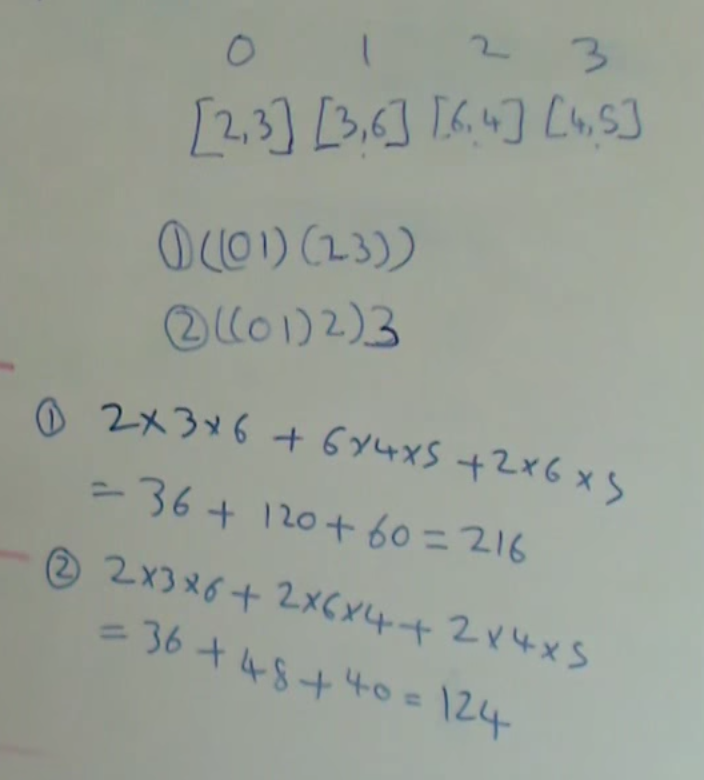 0 1 2 3
[2,3] [3,6] [6,4] [4,5]
①((01)(23))
②((01)2)3
① 2×3×6 + 6×4×5 + 2×6×5
= 36 + 120 + 60 = 216
② 2×3×6 + 2×6×4 + 2×4×5
= 36 + 48 + 40 = 124